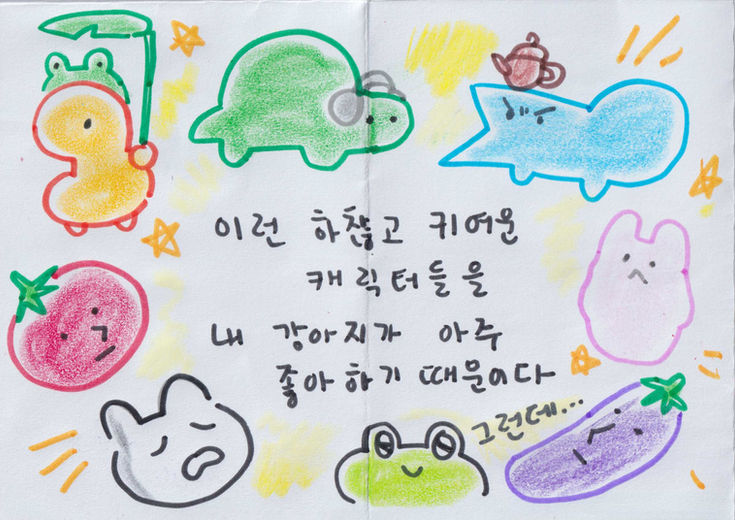 이런 하찮고 귀여운
캐릭터들을
내 강아지가 아주
좋아하기 때문이다
그런데...